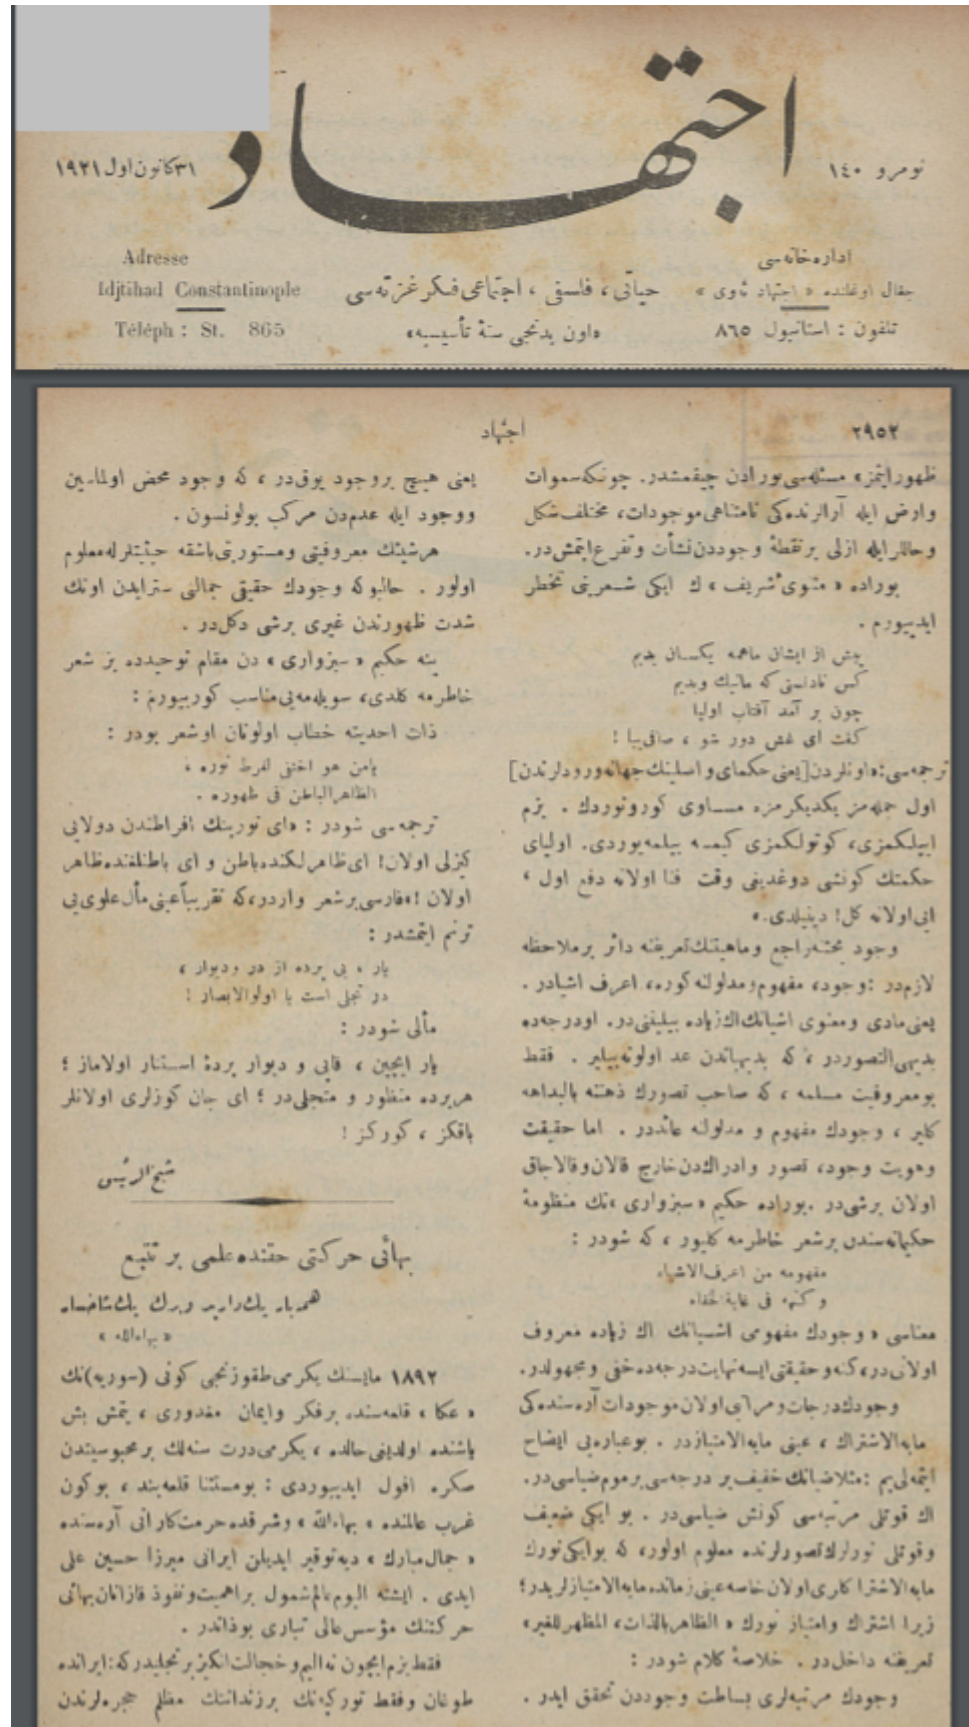 اجتهاد
نومرو ١٤٠
٣١ كانون اول ١٩٢١
اداره خانه سی
جغال اوغلنده « اجتهاد ئاوی »
تلفون : استانبول ٨٦٥
حیاتی ، فلسفی ، اجتماعی فكر غزته سی
«اون یدنجی سنهٔ تأسیسیه»
Adresse
Idjtihad Constantinople
Téléph : St. 865
٢٩٥٢
اجتهاد
ظهور ایتمز » مسئله سی بورادن چیقمشدر. چونكه سموات
وارض ایله آرالرنده كی نامتناهی موجودات، مختلف شكل
وحاللر ایله ازلی بر نقطهٔ وجوددن نشأت وتفرع ایتمش در.
بوراده « مثنوی شریف » ك ایكی شعرینی تخطر
ایدییورم .
پیش از ایشان ماهمه یكسان بدیم
كس ندانستی كه مانیك وبدیم
چون بر آمد آفتاب اولیا
گفت ای غش دور شو ، صافی بیا !
ترجمه سی: «اونلردن [یعنی حكمای واصلینك جهانه ورودلرندن]
اول جمله مز یكدیگرمزه مساوی كورونوردك . بزم
اییلكمزی، كوتولكمزی كیمسه بیلمه یوردی. اولیای
حكمتك كونشی دوغدیغی وقت فنا اولانه دفع اول ،
ایی اولانه كل! دینیلدی.»
وجود بحثنه راجع وماهیتنك تعریفنه دائر بر ملاحظه
لازم در : وجود، مفهوم ومدلولنه كوره، اعرف اشیادر .
یعنی مادی ومعنوی اشیانك اك زیاده بیلینی در. اودرجه ده
بدیهی التصوردر ، كه بدیهاتدن عد اولونه بیلیر . فقط
بومعروفیت مسلمه ، كه صاحب تصورك ذهننه بالبداهه
كلیر ، وجودك مفهوم و مدلولنه عائددر . اما حقیقت
وهویت وجود، تصور وادراك دن خارج قالان وقالاجاق
اولان برشی در . بوراده حكیم « سبزواری » نك منظومهٔ
حكیمانه سندن برشعر خاطرمه كلیور ، كه شودر :
مفهومه من اعرف الاشیاء
وكنهه فی غایة الخفاء
معناسی « وجودك مفهومی اشیانك اك زیاده معروف
اولانی در، كنه وحقیقتی ایسه نهایت درجه ده خفی ومجهولدر.
وجودك درجات ومراتبی اولان موجودات آره سنده كی
مابه الاشتراك ، عینی مابه الامتیازدر . بوعباره یی ایضاح
ایتمه لی یم : مثلا ضیانك خفیف بر درجه سی بر موم ضیاسی در.
اك قوتلی مرتبه سی كونش ضیاسی در . بو ایكی ضعیف
وقوتلی نورلرك تصورلرنده معلوم اولور، كه بوایكی نورك
مابه الاشتراكاری اولان خاصه عینی زمانده مابه الامتیازلریدر؛
زیرا اشتراك وامتیاز نورك « الظاهر بالذات، المظهر للغیر»
تعریفنه داخل در . خلاصهٔ كلام شودر :
وجودك مرتبه لری بساطت وجوددن تحقق ایدر .
یعنی هیچ بر وجود یوق در ، كه وجود محض اولماسین
ووجود ایله عدم دن مركب بولونسون .
هرشیئك معروفیتی ومستوریتی باشقه حیثیتلرله معلوم
اولور . حالبوكه وجودك حقیقی جمالی ستر ایدن اونك
شدت ظهورندن غیری برشی دكل در .
ینه حكیم « سبزواری » دن مقام توحیدده بر شعر
خاطرمه كلدی، سویله مه یی مناسب كورییورم :
ذات احدیته خطاب اولونان اوشعر بودر :
یامن هو اختفی لفرط نوره ،
الظاهر الباطن فی ظهوره .
ترجمه سی شودر : «ای نورینك افراطندن دولایی
كیزلی اولان! ای ظاهرلكنده باطن و ای باطنلغنده ظاهر
اولان !» فارسی برشعر واردر، كه تقریباً عینی مأل علوی یی
ترنم ایتمشدر :
یار ، بی پرده از در ودیوار ،
در تجلی است یا اولوالابصار !
مألی شودر :
یار ایچین ، قاپی و دیوار پردهٔ استتار اولاماز ؛
هر یرده منظور و متجلی در ؛ ای جان كوزلری اولانلر
باقكز ، كوركز !
شیخ الرئیس
بهائی حركتی حقنده علمی بر تتبع
« بهاءالله »
١٨٩٢ مایسنك یكرمی طقوزنجی كونی (سوریه) نك
« عكا » قلعه سنده برفكر وایمان مغدوری ، یتمش بش
یاشنده اولدیغی حالده ، یكرمی درت سنه لك بر محبوسیتدن
صكره افول ایدییوردی : بومستثنا قلعه بند ، بوكون
غرب عالمنده « بهاءالله » وشرقده حرمتكارانی آره سنده
« جمال مبارك » دیه توقیر ایدیلن ایرانی میرزا حسین علی
ایدی . ایشته الیوم عالمشمول بر اهمیت ونفوذ قازانان بهائی
حركتنك مؤسس عالی تباری بوذاتدر .
فقط بزم ایچون نه الیم وخجالت انكیز بر تجلیدر كه : ایرانده
طوغان وفقط توركیه نك بر زنداننك مظلم حجره لرندن